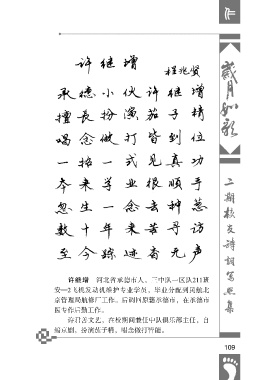 许继增
程兆贤
承德小伙许继增
擅长扮演茄子精
唱念做打皆到位
一招一式见真功
本来学业很顺手
忽生一念去种葱
数十年来苦寻访
至今踪迹杳无声
许继增 河北省承德市人。三中队一区队211班
安—2飞机发动机维护专业学员。毕业分配到民航北
京管理局航修厂工作。后调回原籍承德市，在承德市
医专作后勤工作。
许打舌文艺，在校期间兼任中队俱乐部主任，自
编京剧，扮演茄子精，唱念做打皆能。
岁月如歌
二期校友诗词写照集
109